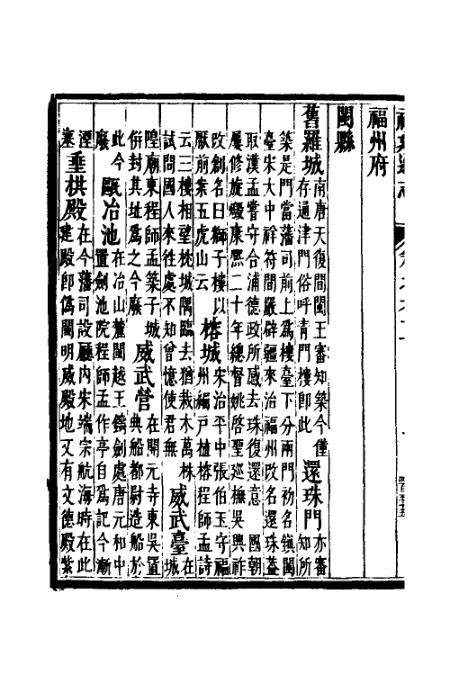 福州府
閩縣
舊羅城 南唐天復間閩王審知築今僅
存通津門俗呼青門樓即此 還珠門 亦審
知所
築是門當藩司前上爲樓臺下分兩門初名鎮閩
臺宋大中祥符間嚴辟疆來治福州改名還珠蓋
取漢孟嘗守合浦德政所感去珠復還意 國朝
屢修旋燬康熙二十年總督姚啓聖巡撫吳興祚
改創名曰獅子樓以
厭前案五虎山云 榕城 宋治平中張伯玉守福
州編戶植榕程師孟詩
云三樓相望枕城隅臨去猶栽木萬株
試問國人來往處不知曾憶使君無 威武臺 在
城
隍廟東程師孟築子城
併封其址爲之今廢 威武營 在開元寺東吳置
典船都尉造船於
此今
廢 歐冶池 在冶山麓閩越王鑄劍處唐元和中
置劍池院程師孟作亭自爲記今漸
湮
塞 垂拱殿 在今藩司設廳內宋端宗航海時在此
建殿即偽閩明威殿地又有文德殿紫